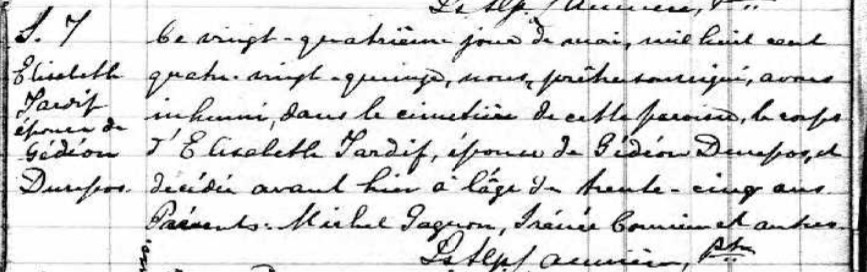 S. 7
Elisabeth
Tardif
épouse de
Gédéon
Durepos.
Ce vingt-quatrième jour de mai, mil huit cent
quatre-vingt-quinze, nous, prêtre soussigné, avons
inhumé, dans le cimetière de cette paroisse, le corps
d'Elisabeth Tardif, épouse de Gédéon Durepos,
décédée avant hier à l'âge de trente-cinq ans.
Présents: Michel Gagnon, Irénée et autres.
Ptre